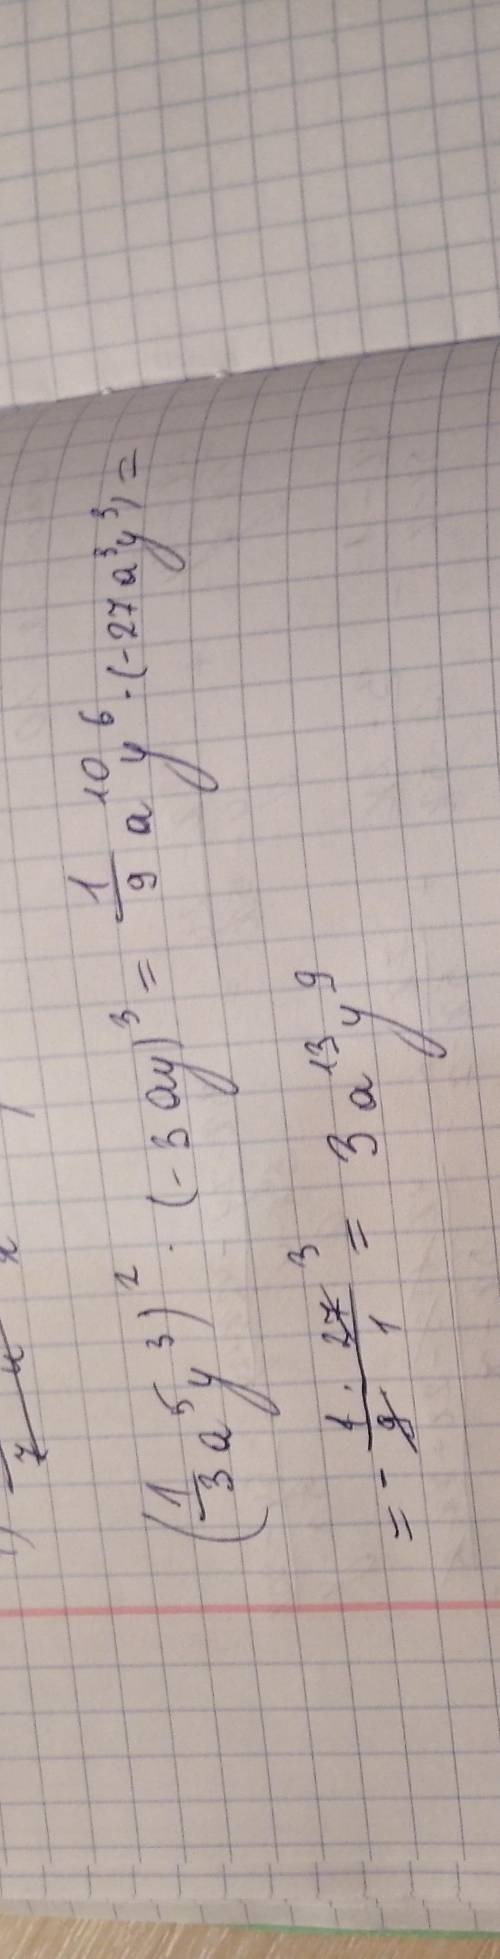 (1/3 a⁵y³)² · (-3ay)³ = 1/9 a¹⁰y⁶ · (-27a³y³) =
= - 1 · 27³/9 1 = 3a¹³y⁹